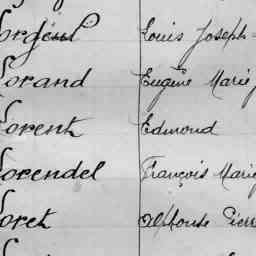 Louis Joseph
Lorand Eugène Marie
Lorent Edmond
Lorendel François Marie
Loret Alphonse Pierre